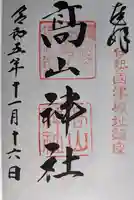 奉拝
伊勢國津城址鎮座
髙山神社
令和五年十一月十六日